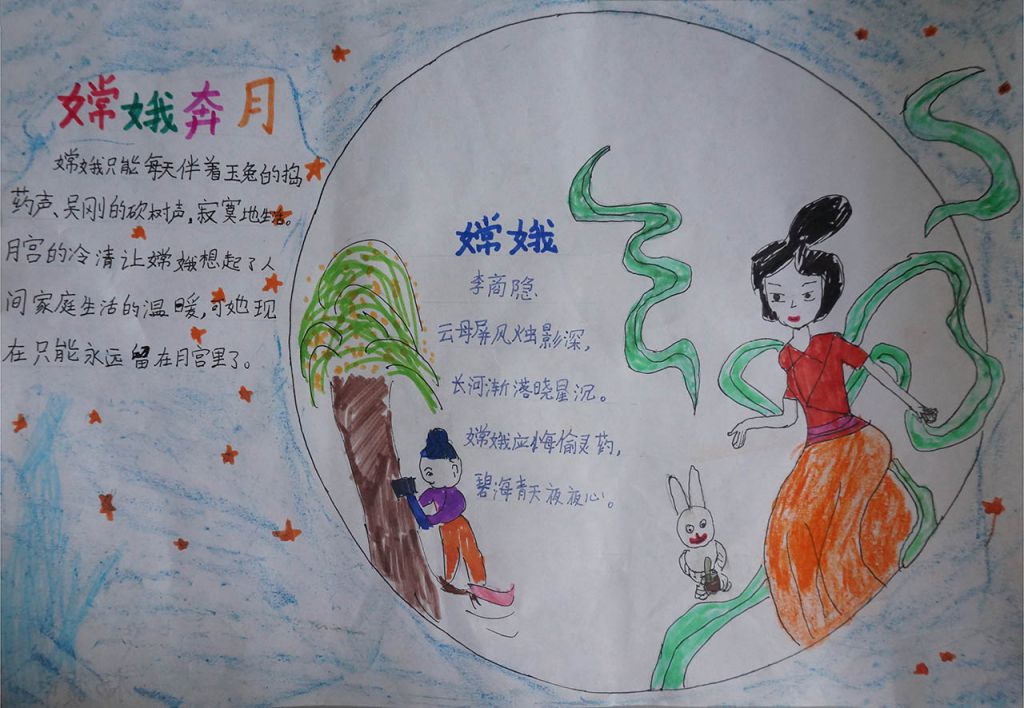 嫦娥奔月
嫦娥只能每天伴着玉兔的捣
药声、吴刚的砍树声,寂寞地生活。
月宫的冷清让嫦娥想起了人
间家庭生活的温暖,可她现
在只能永远留在月宫里了。
嫦娥
李商隐
云母屏风烛影深,
长河渐落晓星沉。
嫦娥应悔偷灵药,
碧海青天夜夜心。